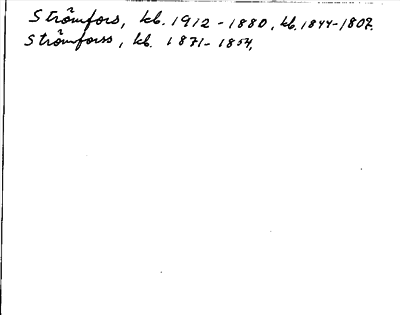 Strömfors, kb. 1912-1880, kb. 1844-1807.
Strömforss, kb. 1871-1854.